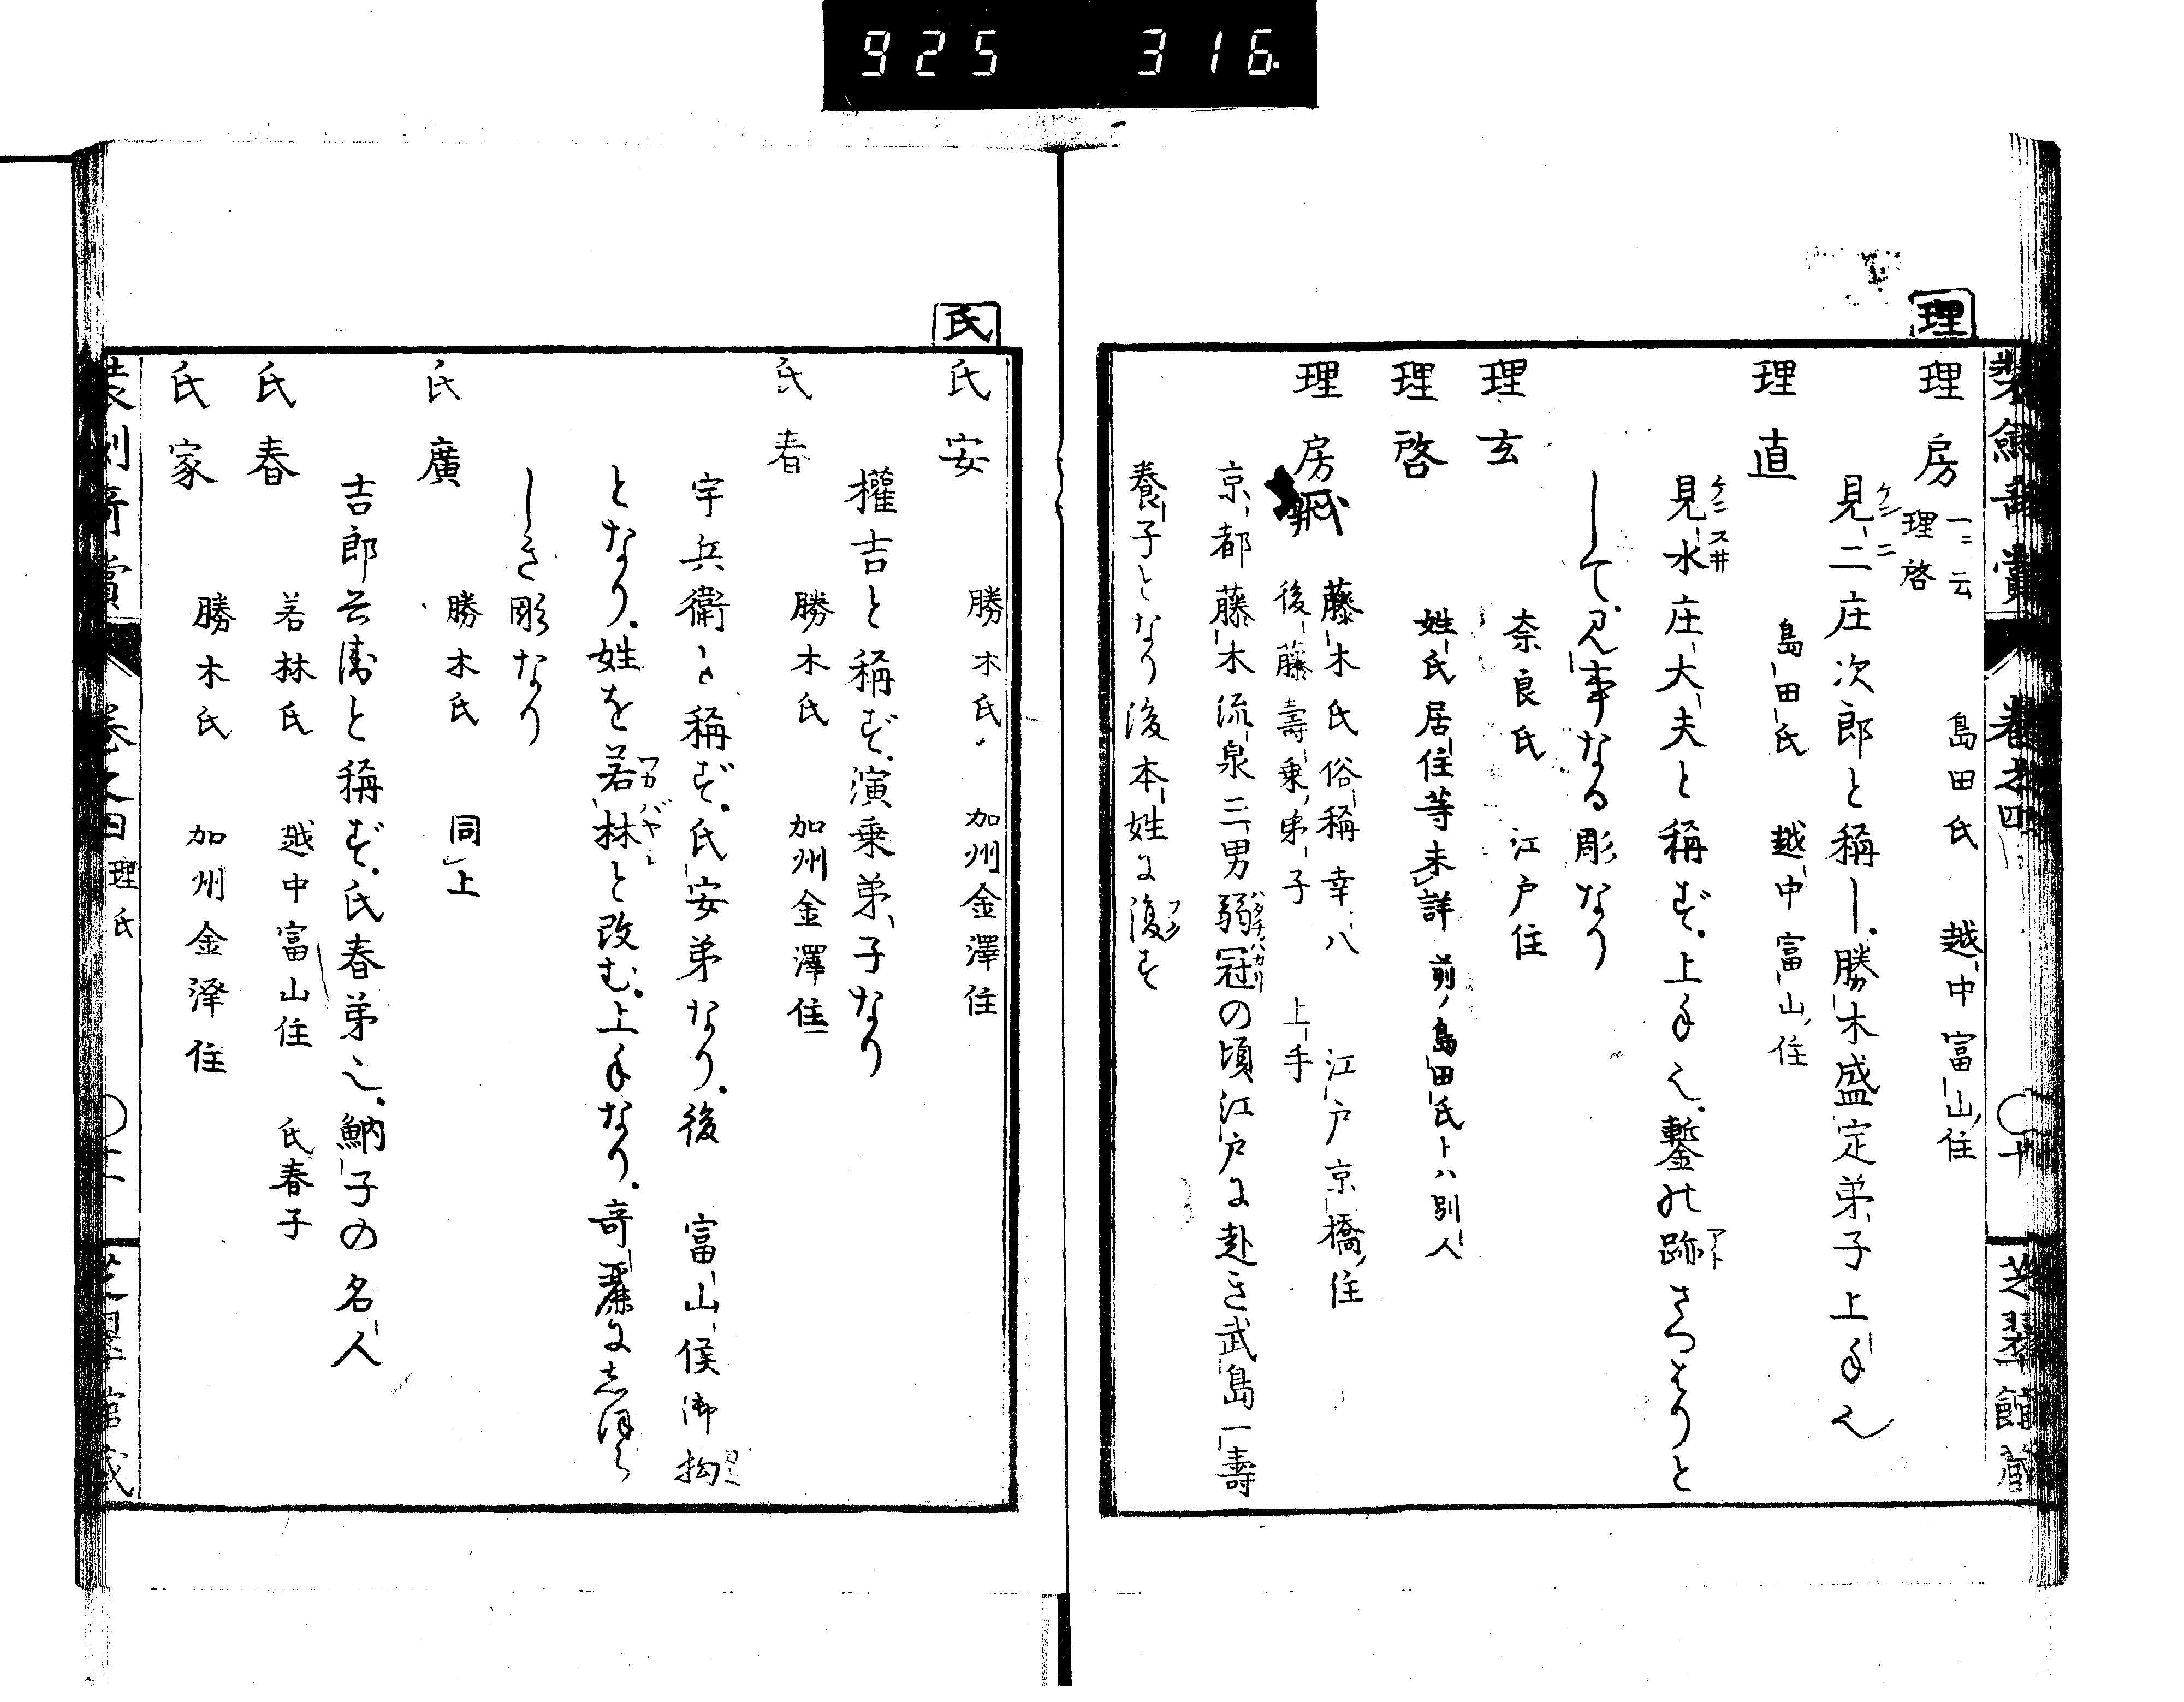 925 316.
理
理房 一ニ云 理啓 島田氏 越中富山住
見二庄次郎と稱し。勝木盛定弟子上手也
理直 島田氏 越中富山住
見水庄大夫と稱ず。上手也。鏨の跡さつはりと
して。見事なる彫なり
理玄 奈良氏 江戸住
理啓 姓氏居住等未詳 前ノ島田氏トハ別人
理房 藤木氏俗稱幸八 江戸京橋住
後藤壽乗弟子 上手
京都藤木流泉三男弱冠の頃江戸に赴き武島一壽
養子となり後本姓に復す
芝翠館蔵
氏
氏安 勝木氏 加州金澤住
權吉と稱ず。演乗弟子なり
氏春 勝木氏 加州金澤住
宇兵衛と稱ず。氏安弟なり。後 富山侯御抱
となり。姓を若林と改む。上手なり。奇麗に志ほら
しき彫なり
氏廣 勝木氏 同上
吉郎兵衛と稱ず。氏春弟也。魶子の名人
氏春 若林氏 越中富山住 氏春子
氏家 勝木氏 加州金澤住
理氏